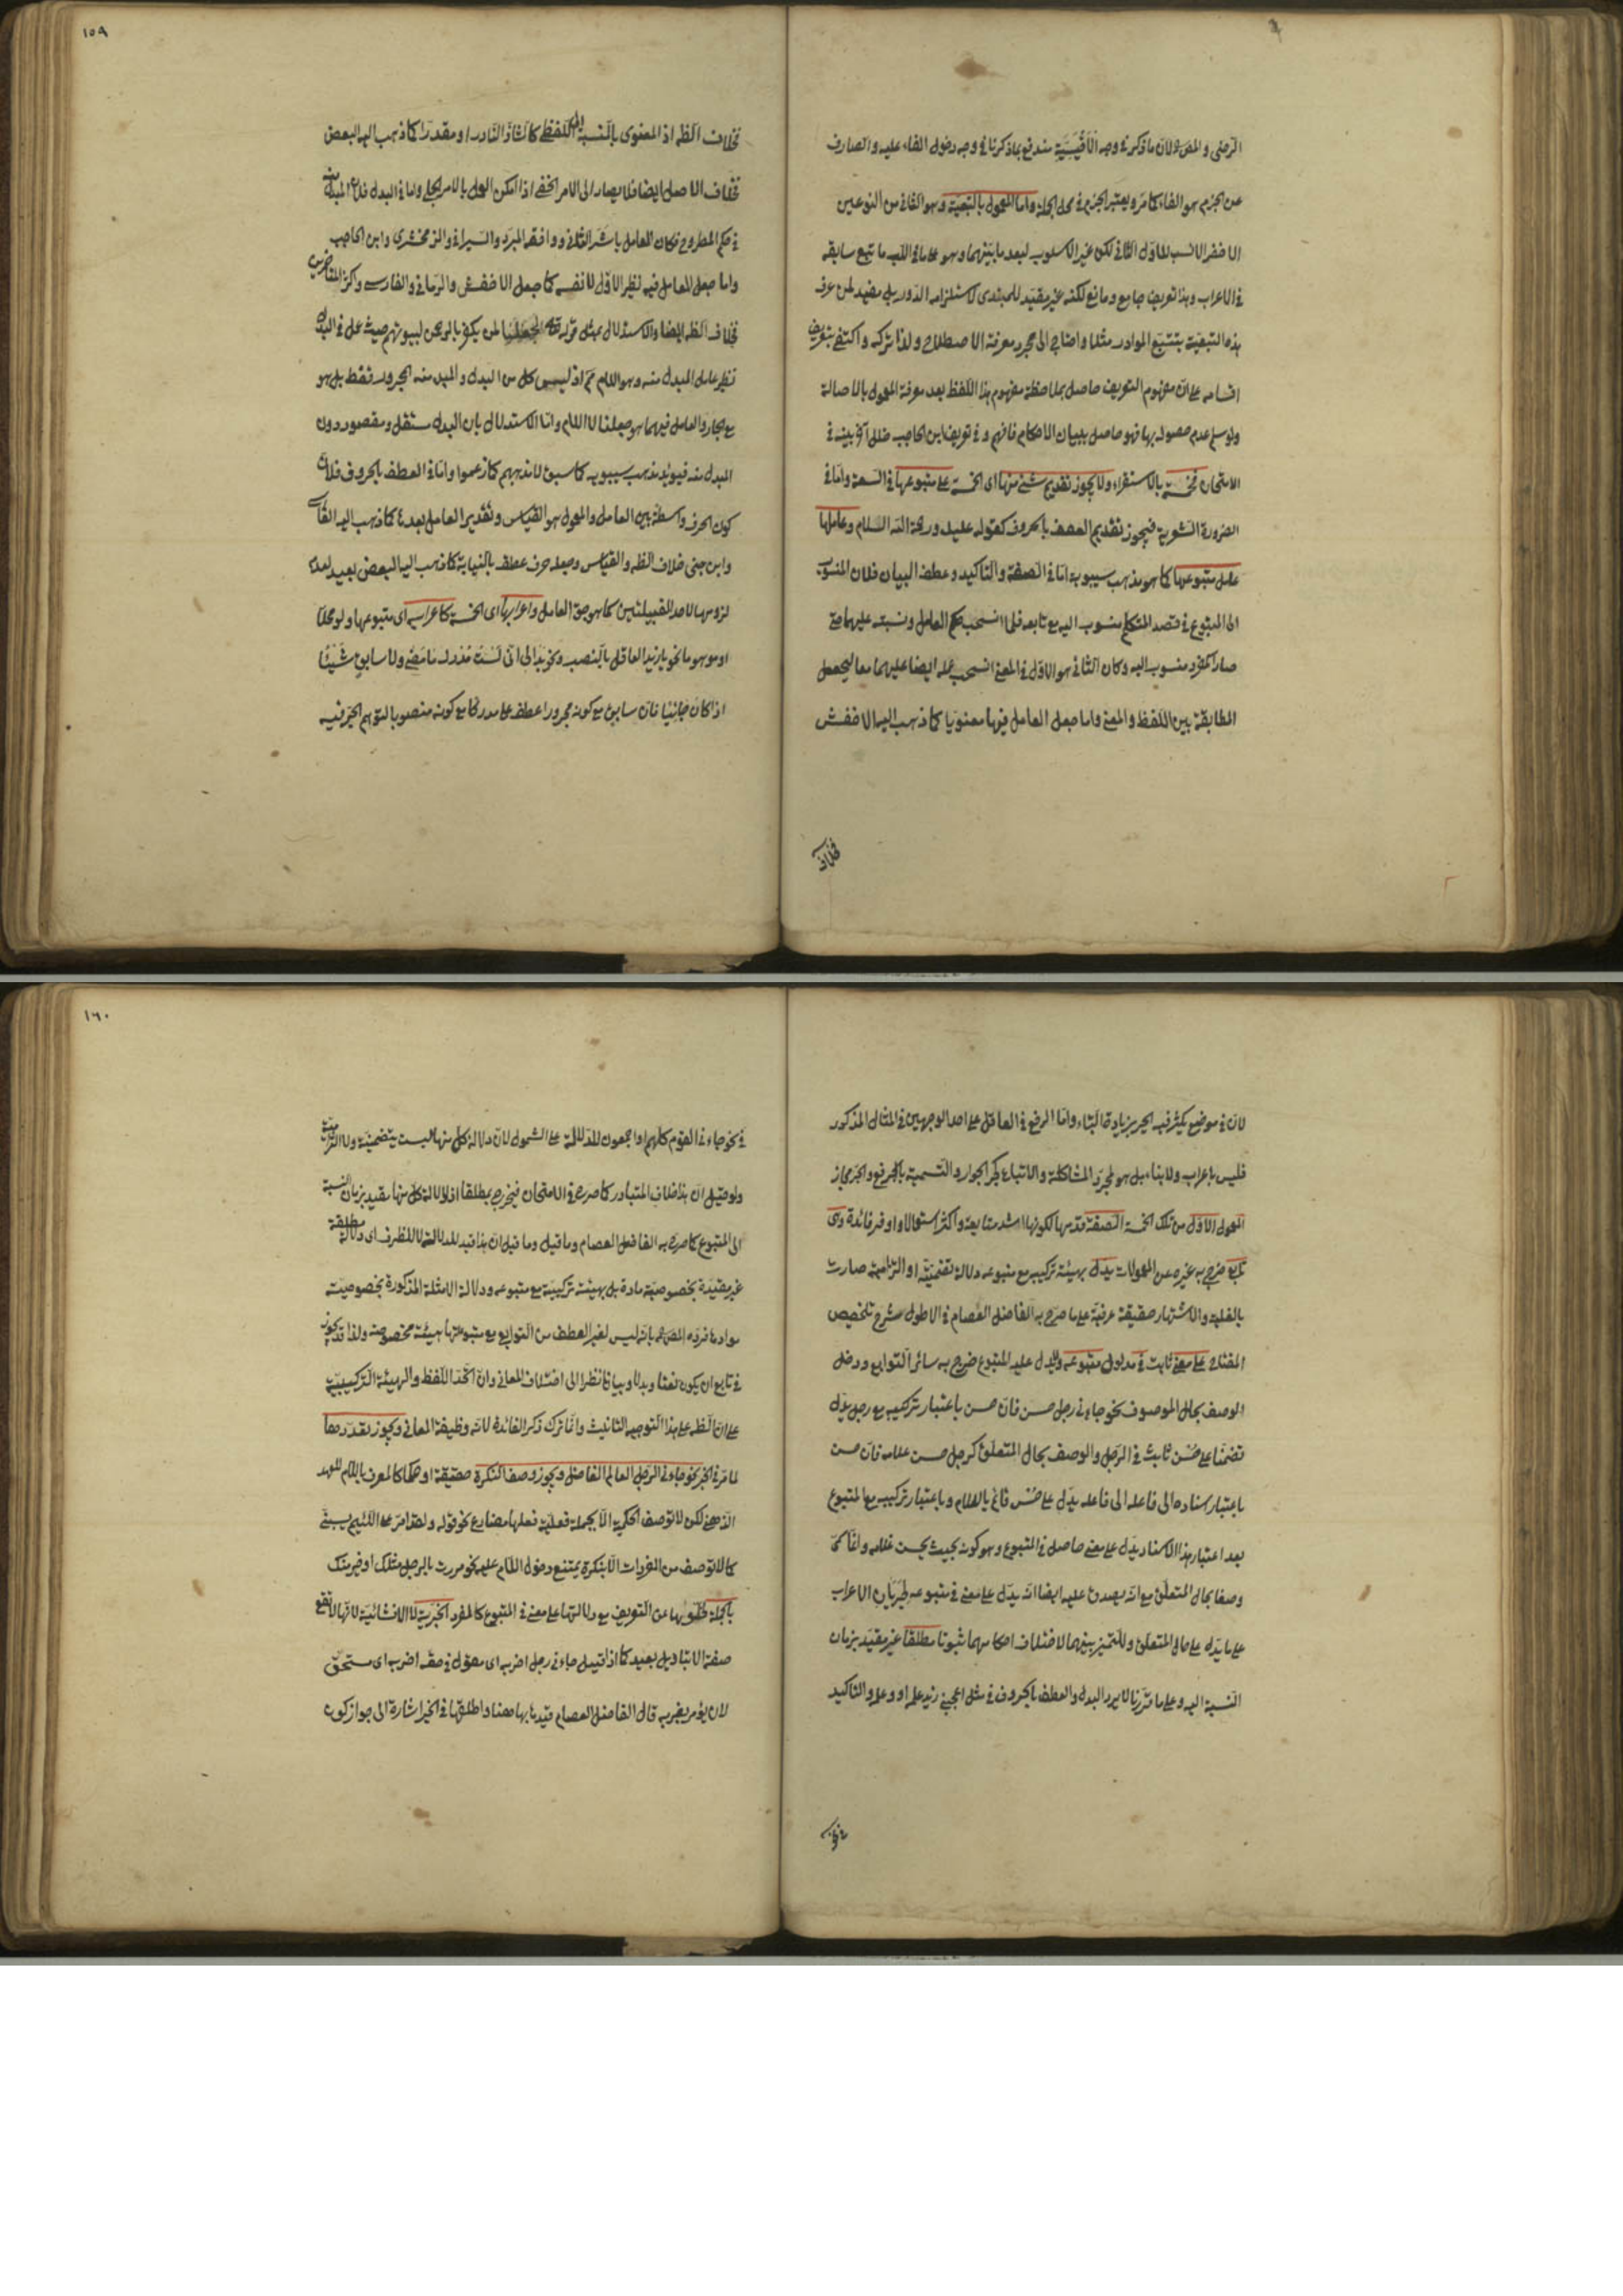 الرضى والمص لان ما ذكر فى وجه الاقيسية مندفع بما ذكرنا فى وجه دخول الفاء عليه والصارف
عن الجزم هو الفاء كما مر ويعتبر الجزم فى محل الجملة واما المعمول بالتبعية وهو الثانى من النوعين
الاخضر الانسب للاول الثانى لكن غير الاسلوب لبعد ما بينهما وهو على ما فى اللب ما تبع سابقه
فى الاعراب وهذا تعريف جامع ومانع لكنه غير مفيد للمبتدى لاستلزامه الدور بل مفيد لمن عرف
هذه التبعية بتتبع الموارد مثلا واحتاج الى مجرد معرفة الاصطلاح ولذا تركه واكتفى بتعريف
اقسامه على ان مفهوم التعريف حاصل بملاحظة مفهوم هذا اللفظ بعد معرفة المعمول بالاصالة
ولو سلم عدم حصوله بها فهو حاصل ببيان الاحكام فافهم وفى تعريف ابن الحاجب خلل آخر بينه فى
الامتحان فخمسة بالاستقراء ولا يجوز تقديم شئ منها اى الخمسة على متبوعها فى السعة واما فى
الضرورة الشعرية فيجوز تقديم العطف بالحروف كقوله عليك ورحمة الله السلام وعاملها
عامل متبوعها كما هو مذهب سيبويه اما فى الصفة والتاكيد وعطف البيان فلان المنسوب
الى المتبوع فى قصد المتكلم منسوب اليه مع تابعه فلما انسحب حكم العامل ونسبته عليهما حتى
صار المفرد منسوب اليه وكان الثانى هو الاول فى المعنى انسحب عمله ايضا عليهما معا ليحصل
المطابقة بين اللفظ والمعنى واما جعل العامل فيها معنويا كما ذهب اليه الاخفش
فخلاف
١٥٩
فخلاف الظ اذ المعنوى بالنسبة الى اللفظى كالشاذ النادر او مقدرا كما ذهب اليه البعض
فخلاف الاصل ايضا فلا يصار الى الامر الخفى اذا امكن العمل بالامر الجلى واما فى البدل فلان المبدل منه
فى حكم المطروح فكان العامل باشر الثانى ووافقه المبرد والسيرافى والزمخشرى وابن الحاجب
واما جعل العامل فيه نظير الاول لا نفسه كما جعل الاخفش والرمانى والفارسى واكثر المتاخرين
فخلاف الظ ايضا والاستدلال بمثل قوله تعالى لجعلنا لمن يكفر بالرحمن لبيوتهم حيث عمل فى البدل
نظير عامل المبدل منه وهو اللام ثم اذ ليس كل من البدل والمبدل منه المجرور فقط بل هو
مع الجار والعامل فيهما هو جعلنا لا اللام واما الاستدلال بان البدل مستقل ومقصود دون
المبدل منه فيؤيد مذهب سيبويه كما سبق لا مذهبهم كما زعموا واما فى العطف بالحروف فلان
كون الحرف واسطة بين العامل والمعمول هو القياس وتقدير العامل بعدها كما ذهب اليه الفارسى
وابن جنى خلاف الظ والقياس وجعله حرف عطف بالنيابة كما ذهب اليه البعض بعيد لعدم
لزومها لاحد القبيلتين كما هو حق العامل واعرابها اى الخمسة كاعرابه اى متبوعها ولو محلا
او موهوما نحو يا زيد العاقل بالنصب ونحو بدا لى انى لست مدرك ما مضى ولا سابق شيئا
اذا كان جائيا فان سابق مع كونه مجرورا عطف على مدرك مع كونه منصوبا لتوهم الجر فيه
لان فى موضع يكثر فيه الجر بزيادة الباء واما الرفع فى العاقل على احد الوجهين فى المثال المذكور
فليس باعراب ولا بناء بل هو لمجرد المشاكلة والاتباع كجر الجوار والتسمية بالرفع والجر مجاز
المعمول الاول من تلك الخمسة الصفة قدمها لكونها اشد متابعة واكثر استعمالا واوفر فائدة وهى
تابع خرج به غيره عن المعمولات يدل بهيئة تركيبه مع متبوعه دلالة تضمنية او التزامية صارت
بالغلبة والاشتهار حقيقة عرفية على ما صرح به الفاضل العصام فى الاطول شرح تلخيص
المفتاح على معنى ثابت فى مدلول متبوعه ويدل عليه المتبوع خرج به سائر التوابع ودخل
الوصف بحال الموصوف نحو جاءنى رجل حسن فان حسن باعتبار تركيبه مع رجل يدل
تضمنا على حسن ثابت فى الرجل والوصف بحال المتعلق كرجل حسن غلامه فان حسن
باعتبار اسناده الى فاعله الى فاعله يدل على حسن قائم بالغلام وباعتبار تركيبه مع المتبوع
بعد اعتبار هذا الاسناد يدل على معنى حاصل فى المتبوع وهو كونه بحيث يحسن غلامه وانما سمى
وصفا بحال المتعلق مع انه يصدق عليه ايضا انه يدل على معنى فى متبوعه لجريان الاعراب
على ما يدل على حال المتعلق وللتميز بينهما لاختلاف احكامهما ثبوتا مطلقا غير مقيد بزمان
النسبة اليه وعلى ما قررنا لا يرد البدل والعطف بالحروف فى مثل اعجبنى زيد علمه او وعلمه والتاكيد
فى نحو
١٦٠
فى نحو جاءنى القوم كلهم او اجمعون للدلالة على الشمول لان دلالة كل منها ليست بتضمنية ولا التزامية
ولو قيل ان هذا خلاف المتبادر كما صرح فى الامتحان فيخرج بمطلقا اذ دلالة كل منها مقيد بزمان النسبة
الى المتبوع كما صرح به الفاضل العصام وما قيل وما قيل ان هذا قيد للدلالة لا للظرف اى دلالة مطلقة
غير مقيدة بخصوصية مادة بل بهيئة تركيبية مع متبوعه ودلالة الامثلة المذكورة بخصوصية
موادها فرده المص بانه ليس لغير العطف من التوابع مع متبوعها هيئة مخصوصة ولذا قد يجوز
فى تابع ان يكون نعتا وبدلا وبيانا نظرا الى اختلاف المعانى وان اتحد اللفظ والهيئة التركيبية
على ان الظ على هذا التوجيه التانيث وانما ترك ذكر الفائدة لانه وظيفة المعانى ويجوز تعددها
لما مر فى الخبر نحو جاءنى الرجل العالم الفاضل ويجوز وصف النكرة حقيقة او حكما كالمعرف باللام للعهد
الذهنى لكن لا توصف الحكمية الا بجملة فعلية فعلها مضارع نحو قوله ولقد امر على اللئيم يسبنى
كما لا توصف من المفردات الا بنكرة يمتنع دخول اللام عليه نحو مررت بالرجل مثلك او خير منك
بالجملة لخلوها عن التعريف مع دلالتها على معنى فى المتبوع كالمفرد الخبرية لا الانشائية لانها لا تقع
صفة الا بتاويل بعيد كما اذا قيل جاءنى رجل اضربه اى مقول فى حقه اضربه اى مستحق
لان يؤمر بضربه قال الفاضل العصام قيدها بها هنا واطلقها فى الخبر اشارة الى جواز كون